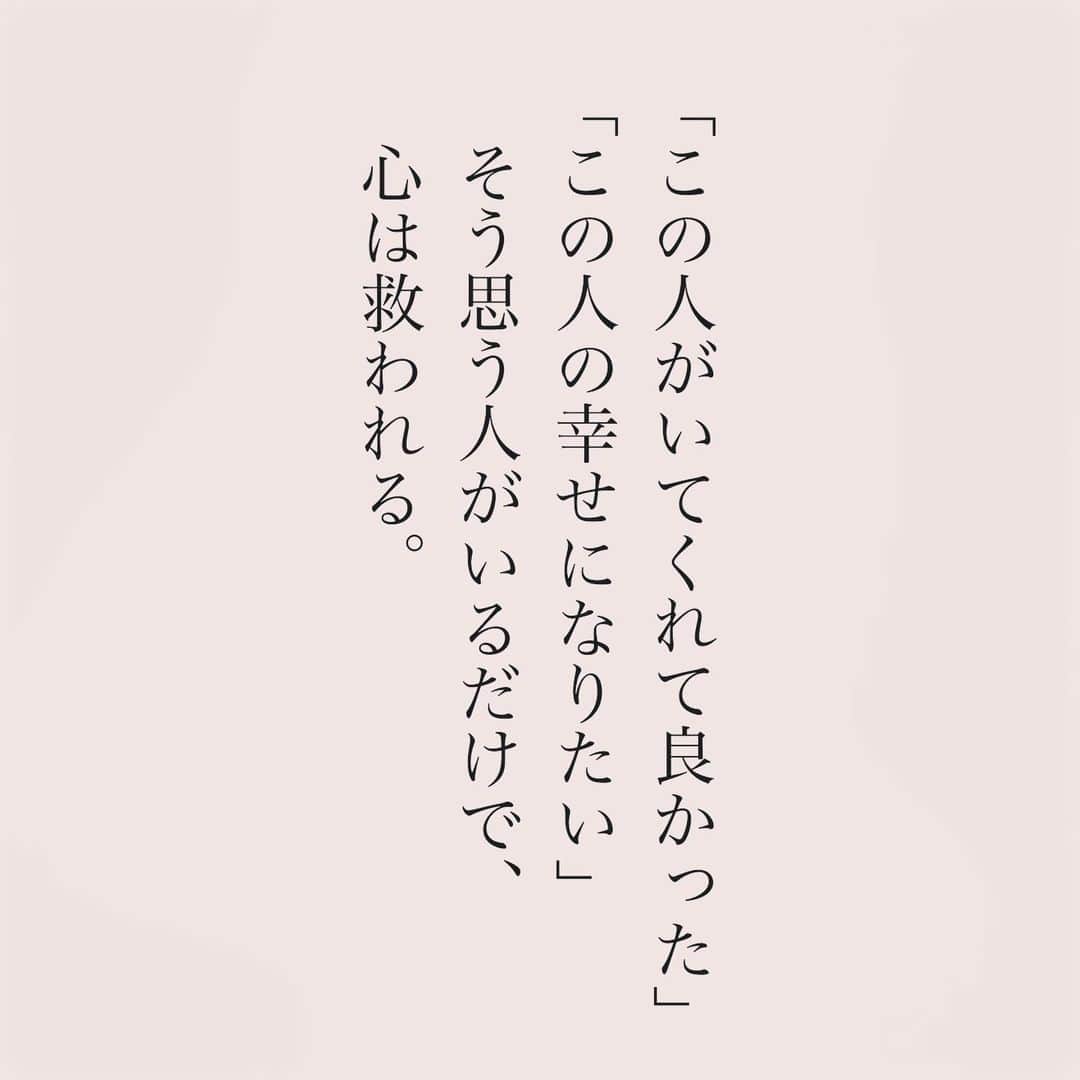 「この人がいてくれて良かった」
「この人の幸せになりたい」
そう思う人がいるだけで、
心は救われる。